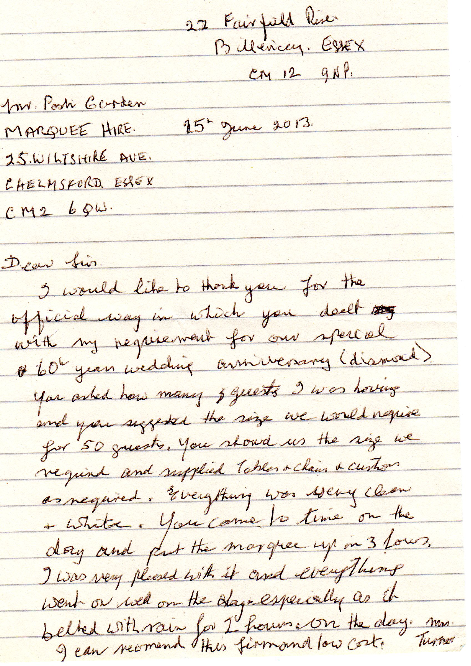 22 Fairfield Rise
Billericay. ESSEX
CM 12 9NP.
Mr. Posh Garden
MARQUEE HIRE. 15th June 2013.
25. WILTSHIRE AVE.
CHELMSFORD ESSEX
CM2 6QW.
Dear Sir
I would like to thank you for the
official way in which you dealt
with my requirement for our special
60th year wedding anniversary (diamond)
You asked how many guests I was having
and you suggested the size we would require
for 50 guests. You showed us the size we
required and supplied Tables + chairs +
as required. Everything was very clean
+ white. You came to time on the
day and put the marquee up in 3 hours.
I was very pleased with it and everything
went on well on the day especially as it
belted with rain for 2 hours. on the day.
I can recomend this firm and low cost. Mrs. Turner